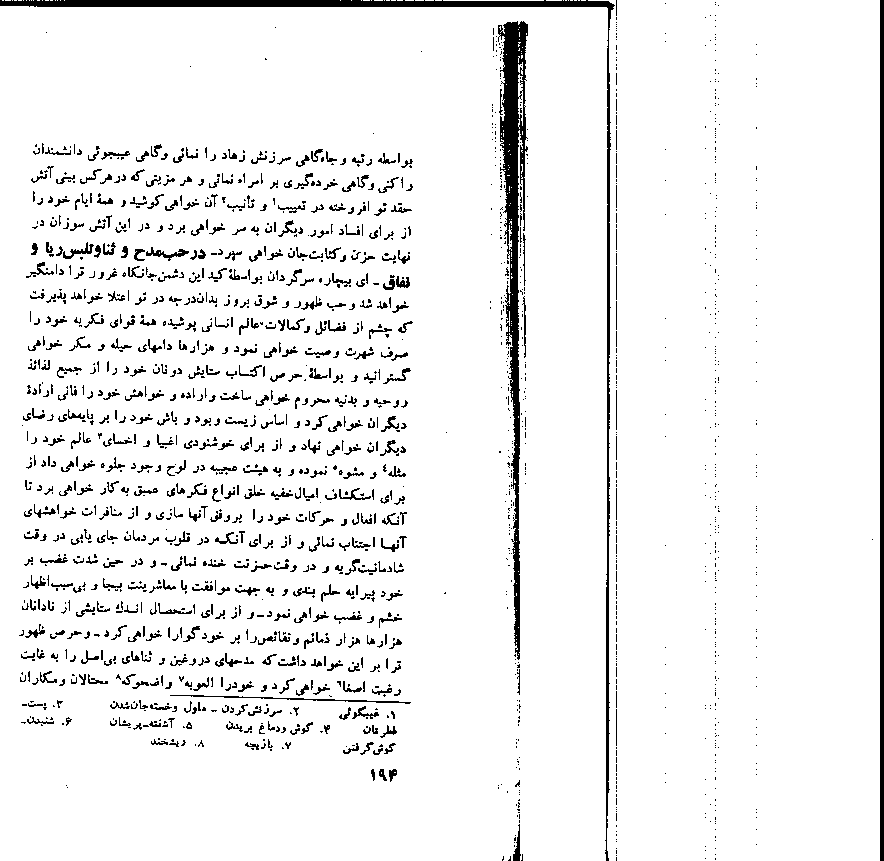 بواسطه رتبه و جاه‌گاهی سرزنش زهاد را نمائی وگاهی عیبجوئی دانشمندان
راکنی وگاهی خرده‌گیری بر امراء نمائی و هر مزیتی‌که درهرکس بینی آتش
حقد تو افروخته در تعییب۱ و تأنیب۲ آن خواهی‌کوشید و همهٔ ایام خود را
از برای افساد امور دیگران به سر خواهی برد و در این آتش سوزان در
نهایت حزن وکثابت‌جان خواهی سپرد- درحب‌مدح و ثناوتلبس‌ریا و
نفاق - ای بیچاره سرگردان بواسطهٔ کید این دشمن‌جانکاه غرور ترا دامنگیر
خواهد شد وحب ظهور و شوق بروز بدان‌درجه در تو اعتلا خواهد پذیرفت
که چشم از فضائل وکمالات عالم انسانی پوشیده همهٔ قوای فکریه خود را
صرف شهرت وصیت خواهی نمود و هزارها دامهای حیله و مکر خواهی
گسترانید و بواسطهٔ حرص اکتساب ستایش دونان خود را از جمیع لذائذ
روحیه و بدنیه محروم خواهی ساخت واراده و خواهش خود را فانی ارادهٔ
دیگران خواهی‌کرد و اساس زیست وبود و باش خود را بر پایه‌های رضای
دیگران خواهی نهاد و از برای خوشنودی اغبیا و اخسای۳ عالم خود را
مثله۴ و مشوه۵ نموده و به هیئت عجیبه در لوح وجود جلوه خواهی داد از
برای استکشاف امیال‌خفیه خلق انواع فکرهای عمیق به‌کار خواهی برد تا
آنکه افعال و حرکات خود را بروفق‌آنها سازی و از منافرات خواهشهای
آنهـا اجتناب نمائی و از برای آنکـه در قلوب مردمان جای یابی در وقت
شادمانیت‌گریه و در وقت‌حـزنت خنده نمائی - و در حین شدت غضب بر
خود پیرایه حلم بندی و به جهت موافقت با معاشرینت بیجا و بی‌سبب‌اظهار
خشم و غضب خواهی نمود - و از برای استحصال اندك ستایشی از نادانان
هزارها هزار ذمائم ونقائص‌را بر خودگوارا خواهی‌کرد - وحرص ظهور
ترا بر این خواهد داشت‌که مدحهای دروغین و ثناهای بی‌اصل را به غایت
رغبت اصغا۶ خواهی‌کرد و خودرا العوبه۷ واضحوکه۸ محتالان ومکاران
۱. عیبگوئی ۲. سرزنش‌کردن - ملول وخسته‌جان‌شدن ۳. پست-
فطرتان ۴. گوش ودماغ بریدن ۵. آشفته-پریشان ۶. شنیدن-
گوش‌گرفتن ۷. بازیچه ۸. ریشخند
۱۹۴